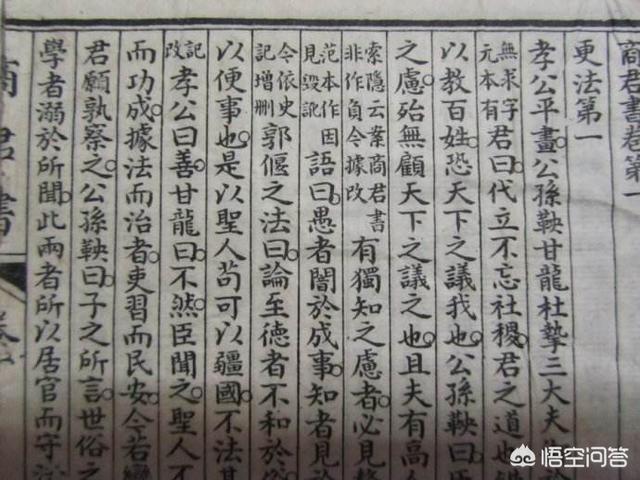 商君書卷第一
更法第一
孝公平畫。公孫鞅甘龍杜摯三大夫
無求字
元本有
君曰。代立不忘社稷。君之道也。
以教百姓。恐天下之議我也。公孫鞅曰。臣
之慮。殆無顧天下之議之也。且夫有高人
索隱云案商君書
非作負今據改
有獨知之慮者。必見
范本作因
見毀訛
語曰。愚者闇於成事。知者見於
令依史
記增刪
郭偃之法曰。論至德者不和於俗
以便事也。是以聖人苟可以疆國。不法其
記
改
孝公曰。善。甘龍曰。不然。臣聞之。聖人不
而功成。據法而治者。吏習而民安。今若變
君願孰察之。公孫鞅曰。子之所言。世俗之
學者溺於所聞。此兩者所以居官而守法
商君書
悟空问答